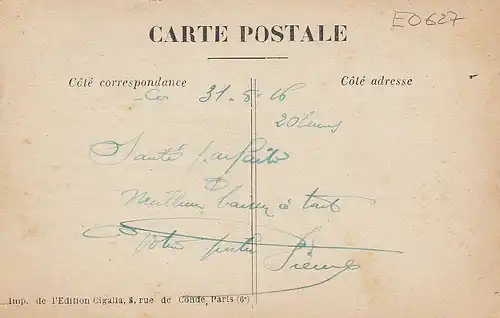 E0627
CARTE POSTALE
Côté correspondance
Côté adresse
Ce 31-8-16
20 heures
Santé parfaite
Meilleurs baisers à tous
Votre petit Pierre
Imp. de l'Edition Cigalia, 8, rue de Condé, Paris (6e)